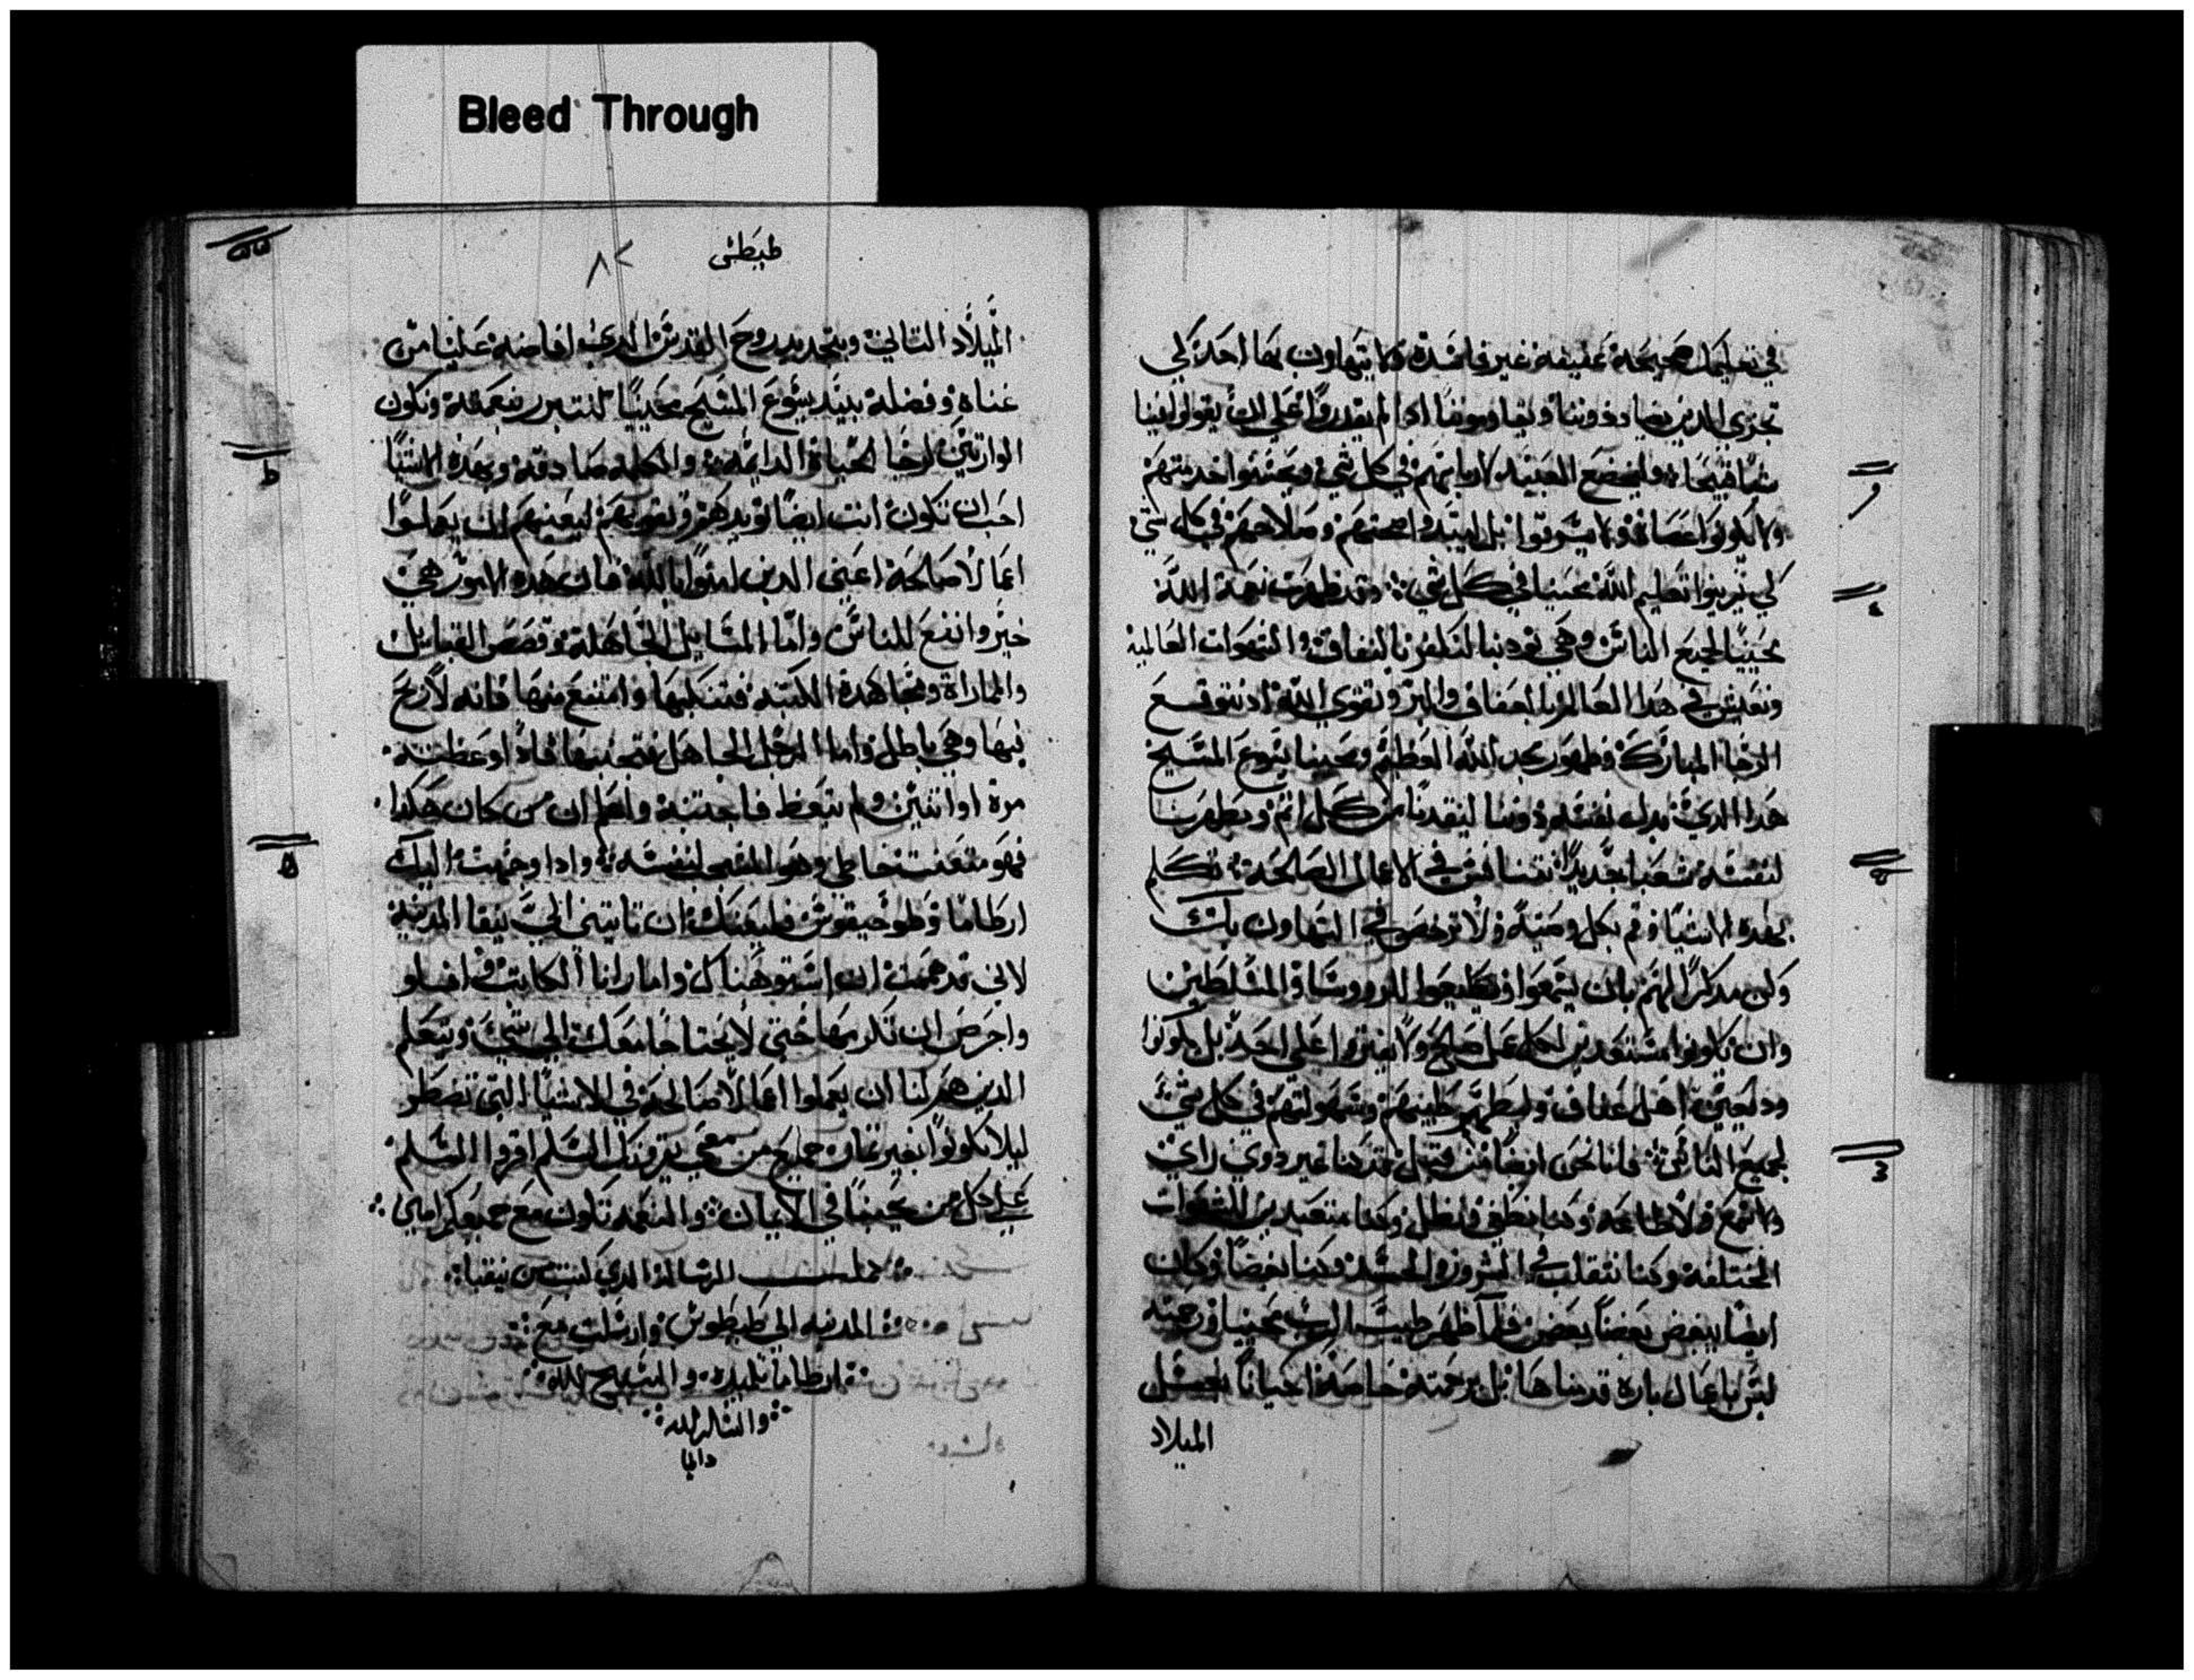 Bleed Through
في تعليمك صحيحة عفيفة غير فاسدة ولا يتهاون بها احد لكي
يخزي الذين يضادوننا ويقاوموننا اذا لم يقدروا على ان يقولوا فينا
شيا قبيحا وليخضع العبيد لاربابهم في كل شي ويحسنوا خدمتهم
ولا يكونوا عصاة ولا يسرقوا بل ليبتدوا صحتهم وصلاحهم في كل شي
لكي يزينوا تعليم الله محيينا في كل شي وقد ظهرت نعمة الله
محيينا لجميع الناس وهي تودبنا لنكفر بالنفاق والشهوات العالمية
ونعيش في هذا العالم بالعفاف والبر وتقوى الله اذ نتوقع
الرجا المبارك وظهور مجد الله العظيم ومحيينا يسوع المسيح
هدا الدي بدل نفسه دوننا لينقدنا من كل اثم ويطهرنا
لنفسه شعبا جديدا نتنافس في الاعمال الصالحة تكلم
بهده الاشيا وقم بكل وصية ولا ترخص في التهاون بك
وكن مدكرا لهم بان يسمعوا ويطيعوا للرووسا والمسلطين
وان يكونوا مستعدين لكل عمل صالح ولا يفتروا على احد بل يكونوا
ودعين اهل عفاف وليظهر طيبهم وسهولتهم في كل شي
لجميع الناس فانا نحن ايضا من قبل قد كنا غير دوي راي
ولا سمع ولا طاعه وكنا نطغى ونظل وكنا متعبدين للشهوات
المختلفة وكنا نتقلب في الشرور والحسد وكنا بغضا وكان
ايضا يبغض بعضنا بعض فلما ظهر طيب الرب محيينا ورحمته
ليس باعمال باره قدمناها بل برحمته خاصة احيانا بغسل
الميلاد
طيطس
٨٢
الميلاد الثاني وبتجديد روح القدس الدي افاضه علينا من
غناه وفضله بيد يسوع المسيح محيينا لنتبرر بنعمته ونكون
الوارثين لرجا الحياة الدايمة والكلمه صادقه وبهده الاشيا
احب ان تكون انت ايضا تويدهم وتقويهم ليعنيهم ان يعملوا
اعمالا صالحة اعني الدين امنوا بالله فان هده الامور هي
خير وانفع للناس واما المسايل الجاهلة وقصص القبايل
والمماراة ومجاهدة الكتبه فتنكبها وامتنع منها فانه لا ربح
فيها وهي باطل واما الرجل الجاهل فتجنبه فادا وعظته
مرة او اثنتين ولم يتعظ فاجتنبه واعلم ان من كان هكدا
فهو متعنت خاطي وهو المشجب لنفسه وادا وجهت اليك
ارطاما وطوخيقوس فليعنك ان تاتيني الى نيقا المدينة
لاني قد هممت ان اشتو هناك واما زانا الكاتب وافلو
واحرص ان تكرمها حتى لا يحتاجا معك الى شي ويتعلم
الدين هم لنا ان يعملوا اعمالا صالحة في الاشيا التي تضطر
ليلا يكونوا بغير ثمار جميع من معي يقروك السلم اقروا السلم
على كل من يحبنا في الايمان والنعمه تكون مع جميعكم امين
كملت الرسالة الدي كتبت من نيقيا
المدينه الى طيطوس وارسلت مع
ارطاما تلميده والسبح لله
والشكر لله
دايما